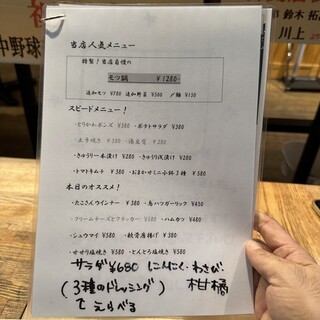 中野球
部 鈴木 拓
川上
当店人気メニュー
特製！当店自慢の
モツ鍋 ¥1280-
追加モツ ¥780 追加野菜 ¥500 /麺 ¥150
スピードメニュー！
・とりかわポンズ ¥380 ・ポテトサラダ ¥380
・きゅうり一本漬け ¥280 ・きゅうり浅漬け ¥280
・トマトキムチ ¥380 ・おまかせミニ小鉢3種 ¥580
本日のオススメ！
・たこさんウインナー ¥380 ・鳥ハツガーリック ¥450
・クリームチーズとクラッカー ¥380 ・ハムカツ ¥480
・シュウマイ ¥380 ・軟骨唐揚げ ¥380
・せせり塩焼き ¥580 ・とんとろ塩焼き ¥580
サラダ ¥680 にんにく・わさび
(3種のドレッシング) 柑橘
でえらべる